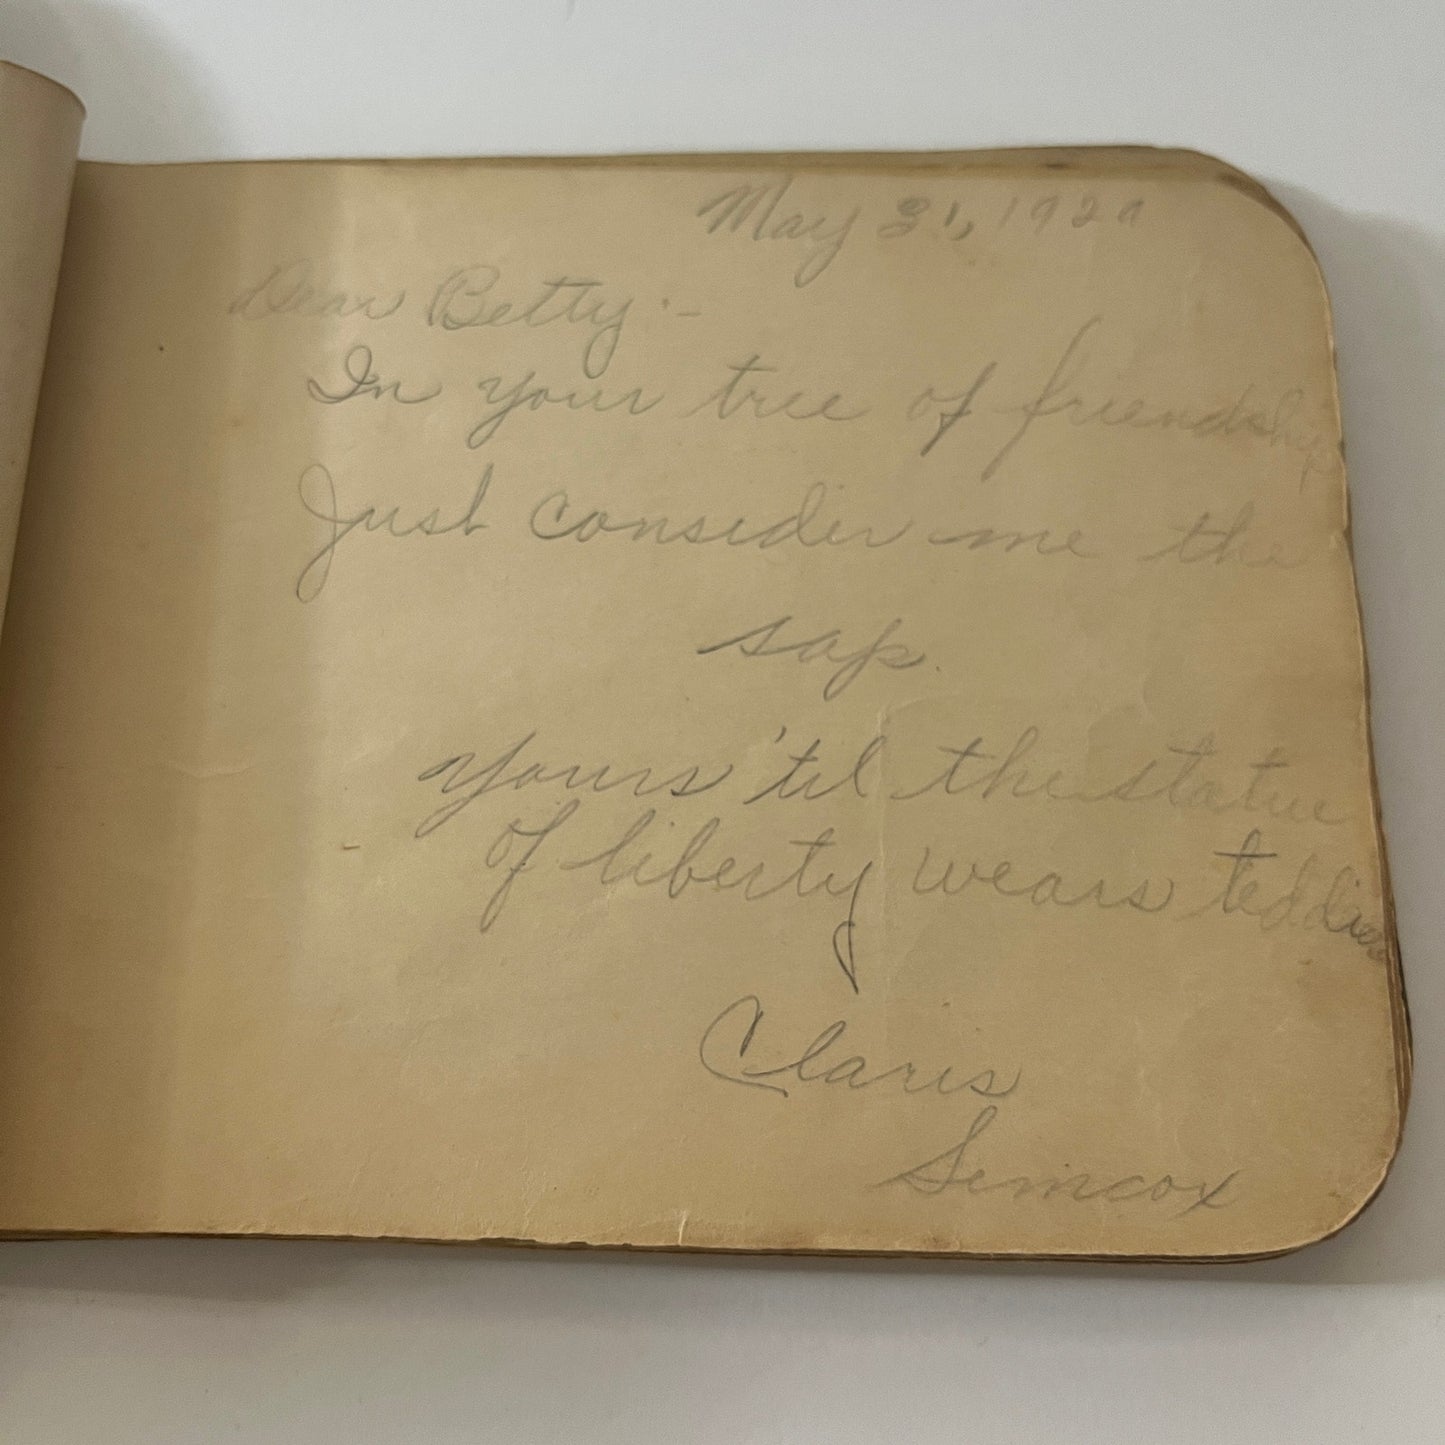 May 31, 1929
Dear Betty:-
In your tree of friendship
Just consider me the
sap.
Yours 'til the statue
of liberty wears teddies
Claris
Simcox